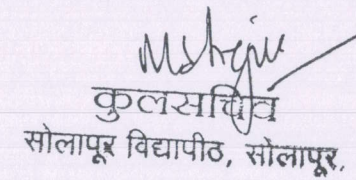 कुलसचिव
सोलापूर विद्यापीठ, सोलापूर.